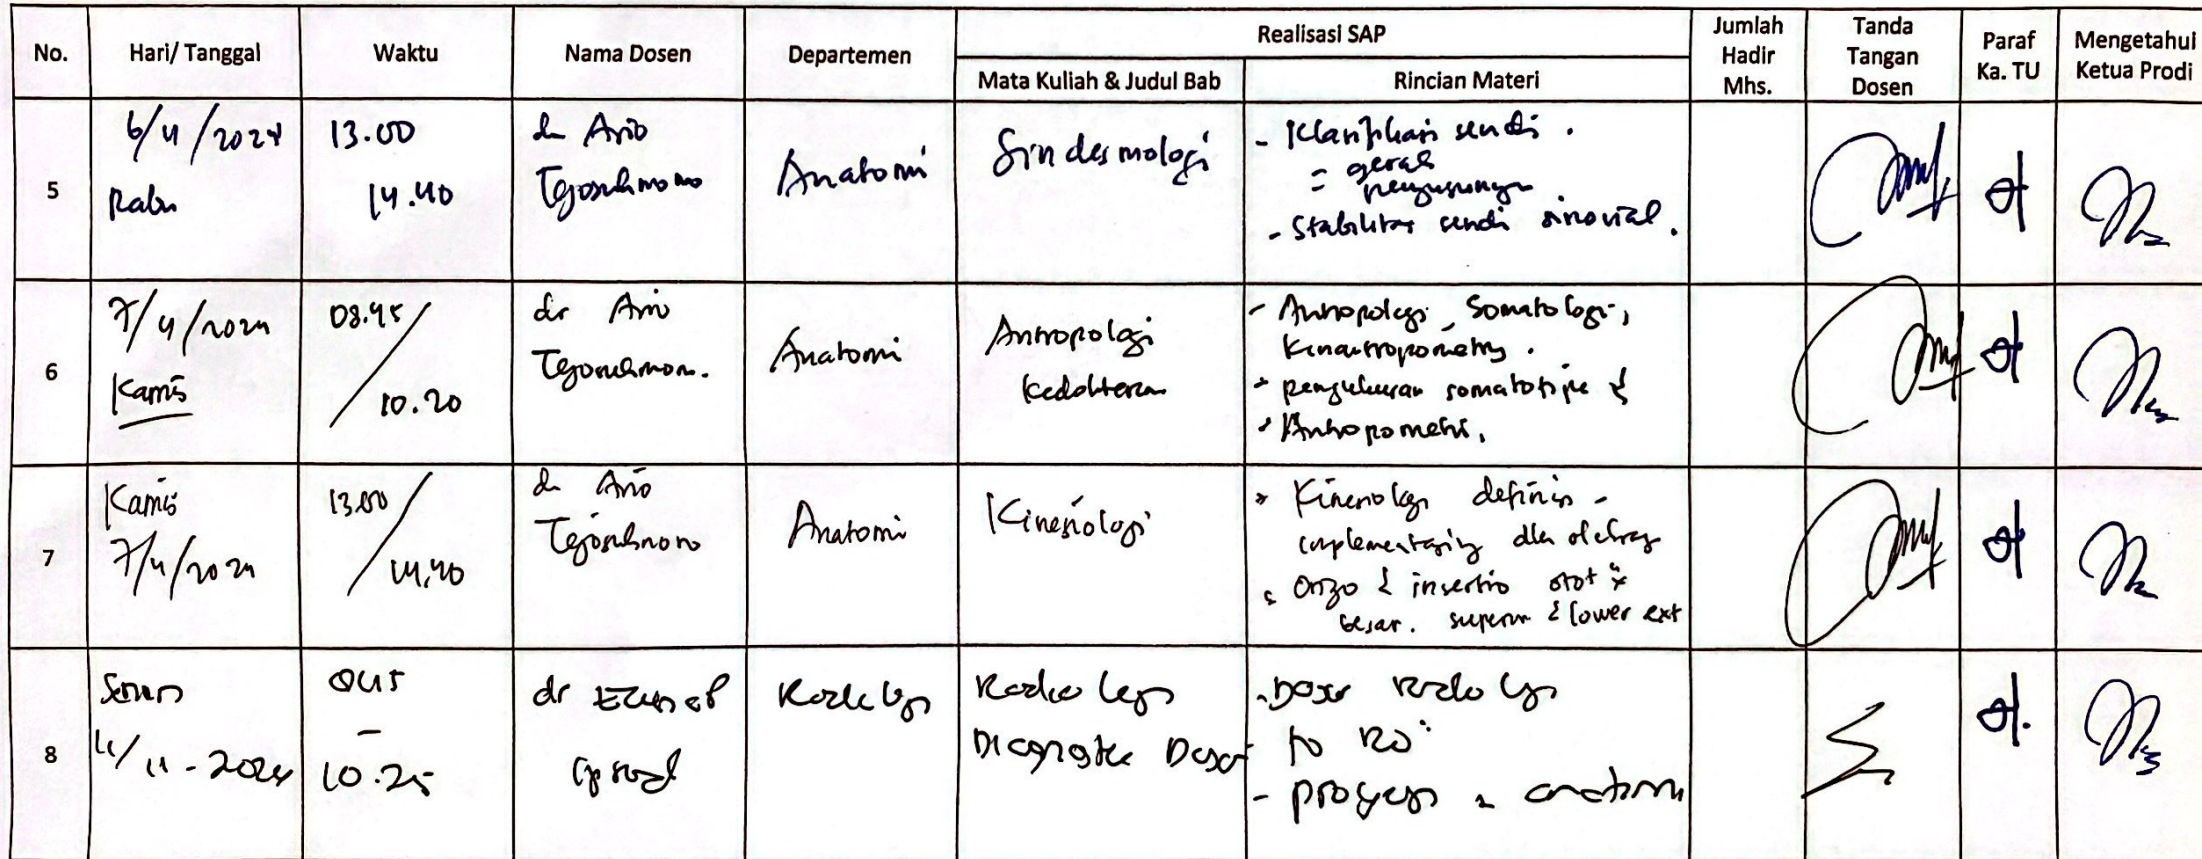 No.
Hari/ Tanggal
Waktu
Nama Dosen
Departemen
Realisasi SAP
Mata Kuliah & Judul Bab
Rincian Materi
Jumlah
Hadir
Mhs.
Tanda
Tangan
Dosen
Paraf
Ka. TU
Mengetahui
Ketua Prodi
5
6/11/2024
Rabu
13.00
14.40
dr Ario
Tejosukmono
Anatomi
Sindesmologi
- Klasifikasi sendi.
= gerak
penyusunnya
- Stabilitas sendi sinovial.
6
7/11/2024
Kamis
08.45
10.20
dr Ario
Tejosukmono.
Anatomi
Antropologi
Kedokteran
- Antropologi, Somatologi,
Kinantropometry.
pengukuran somatotipe &
Antropometri.
7
Kamis
7/11/2024
13.00
14.40
dr Ario
Tejosukmono
Anatomi
Kinesiologi
Kinesiologi definisi -
implementasinya dlm olahraga
Origo & insertio otot
besar. superior & lower ext
8
Senin
11/11-2024
-
10.25
dr
Radiologi
Radiologi
Diagnostik Dasar
- Dasar radiologi
-